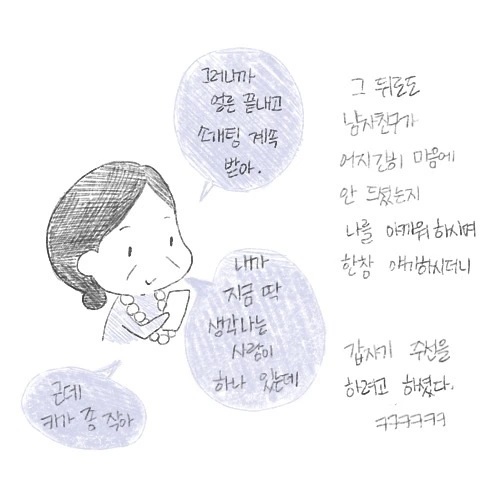 그러니까
얼른 끝내고
소개팅 계속
받아.
내가
지금 딱
생각나는
사람이
하나 있는데
근데
키가 좀 작아
그 뒤로도
남자친구가
어지간히 마음에
안 드셨는지
나를 아까워 하시며
한창 얘기하시더니
갑자기 주선을
하려고 하셨다.
ㅋㅋㅋㅋㅋㅋ